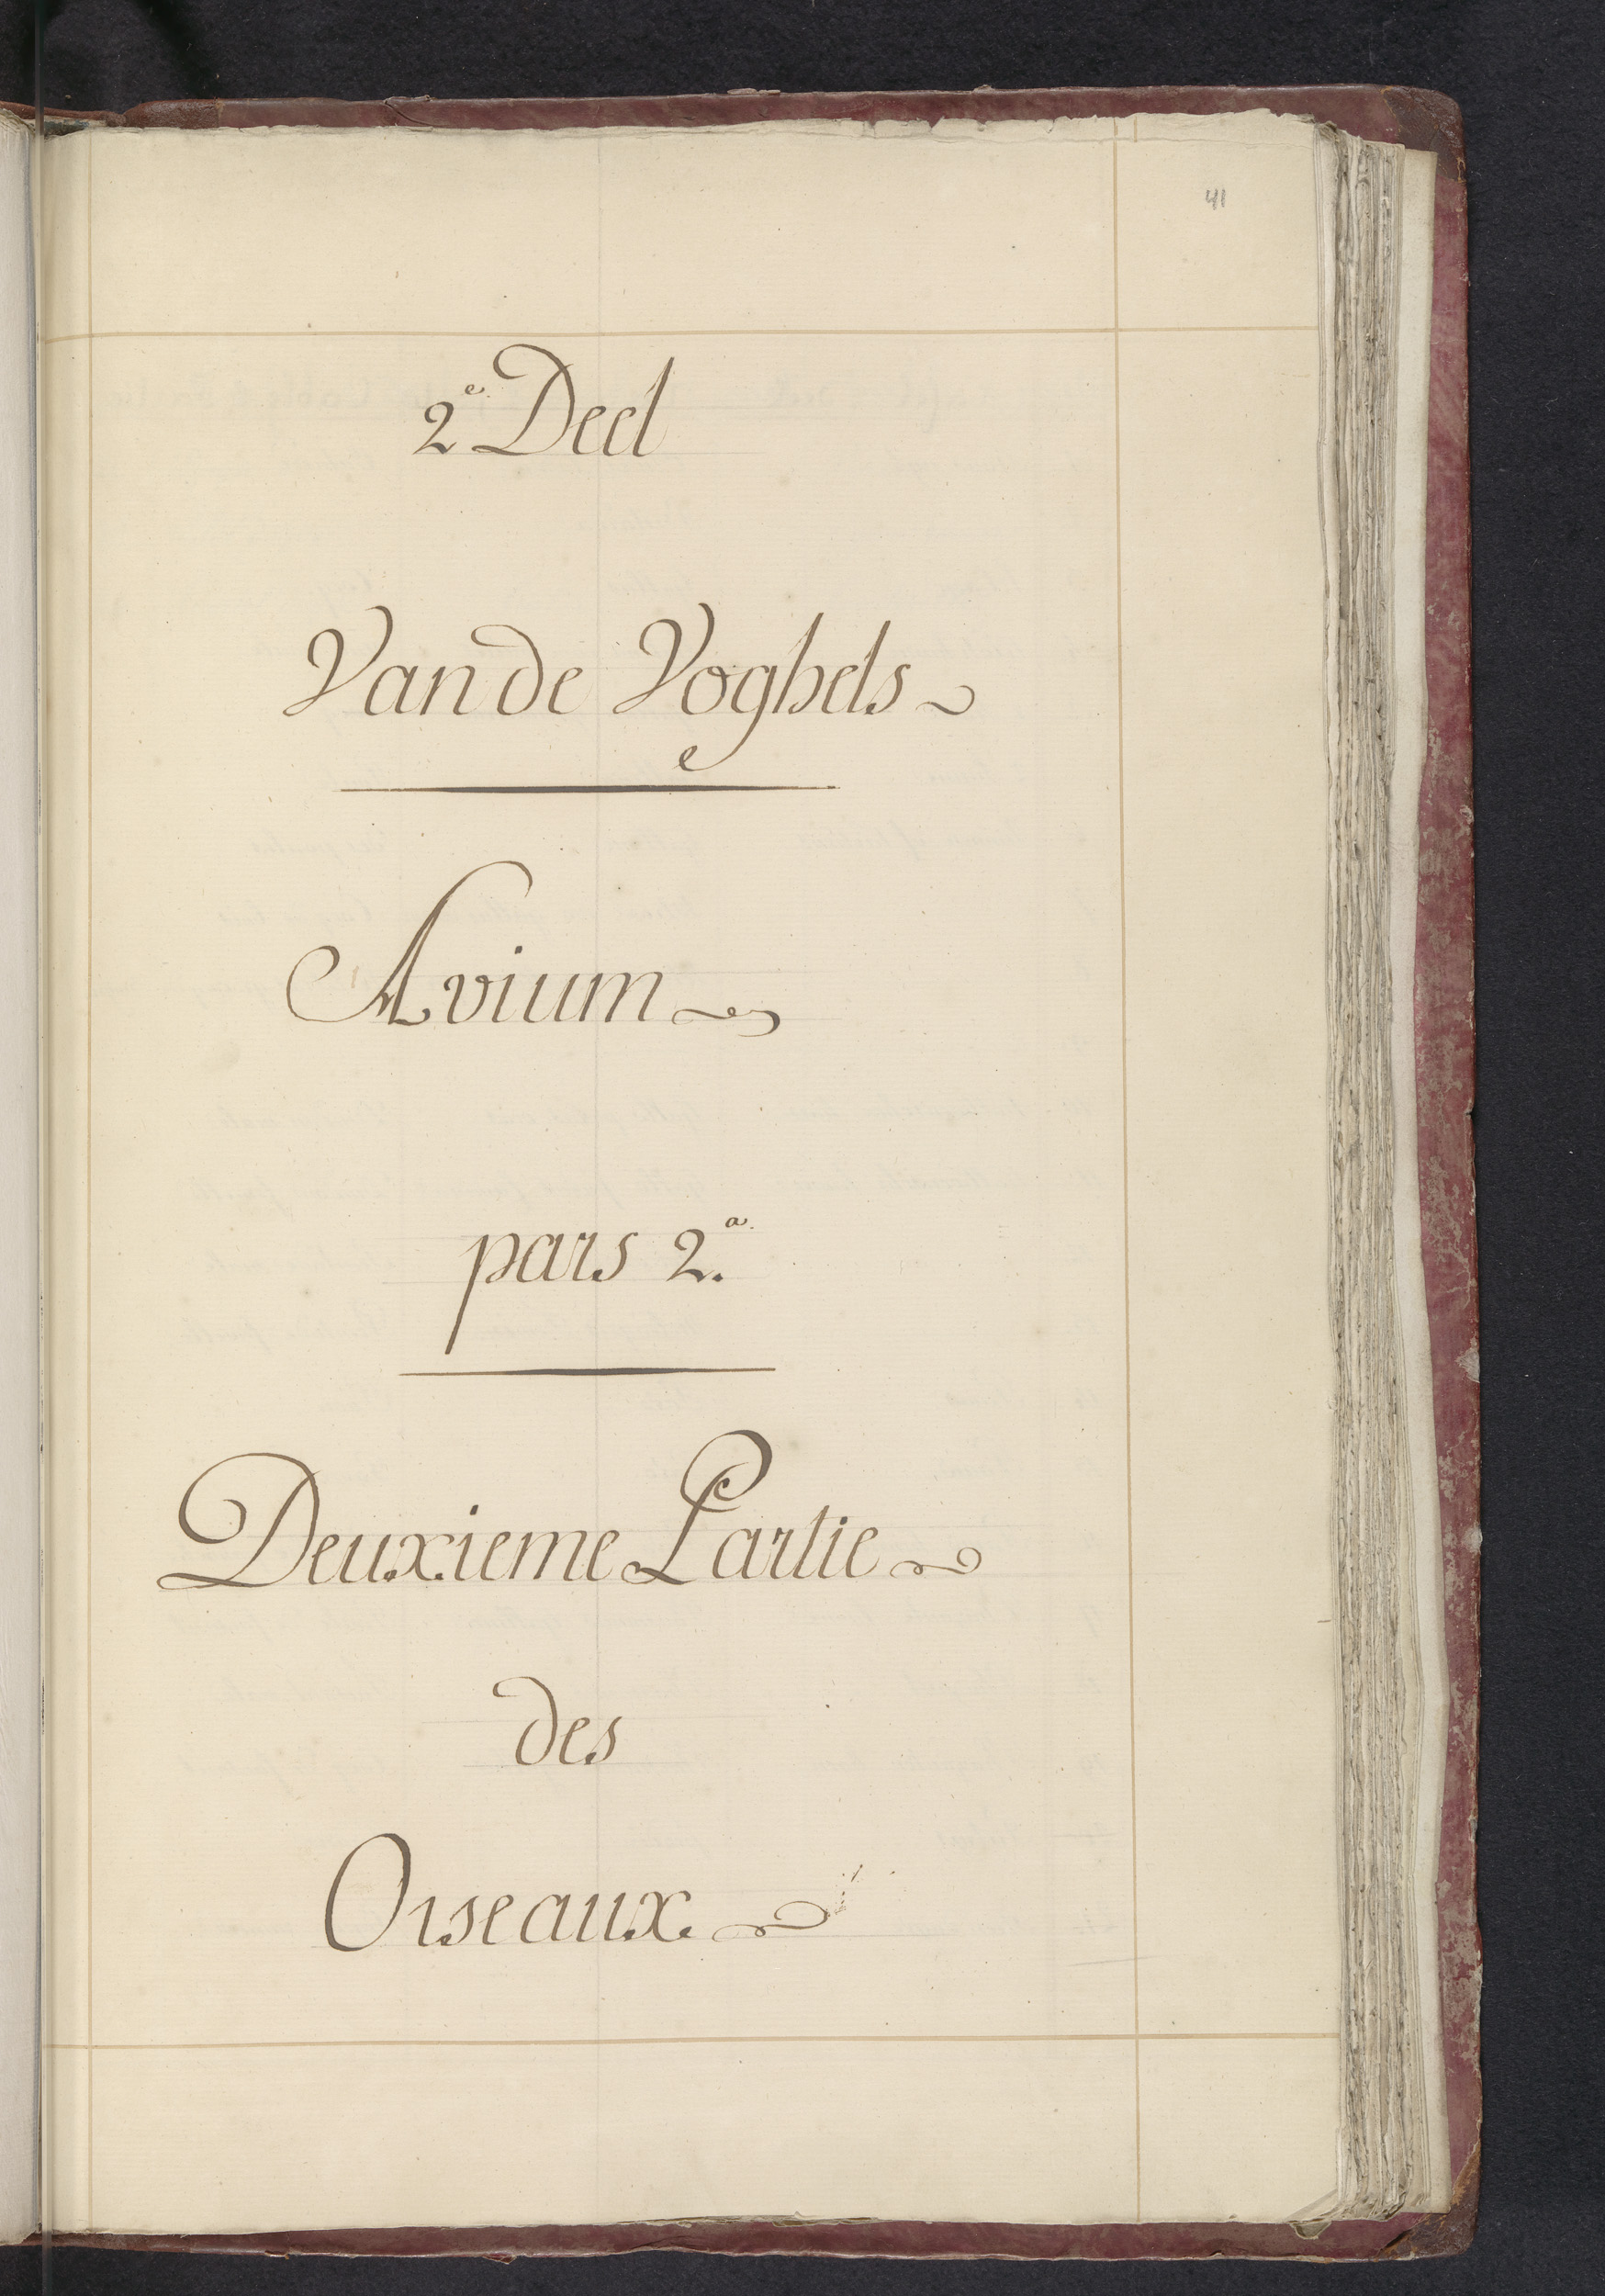 41
2e Deel
Van de Voghels
Avium
pars 2.a
Deuxieme Partie
des
Oiseaux